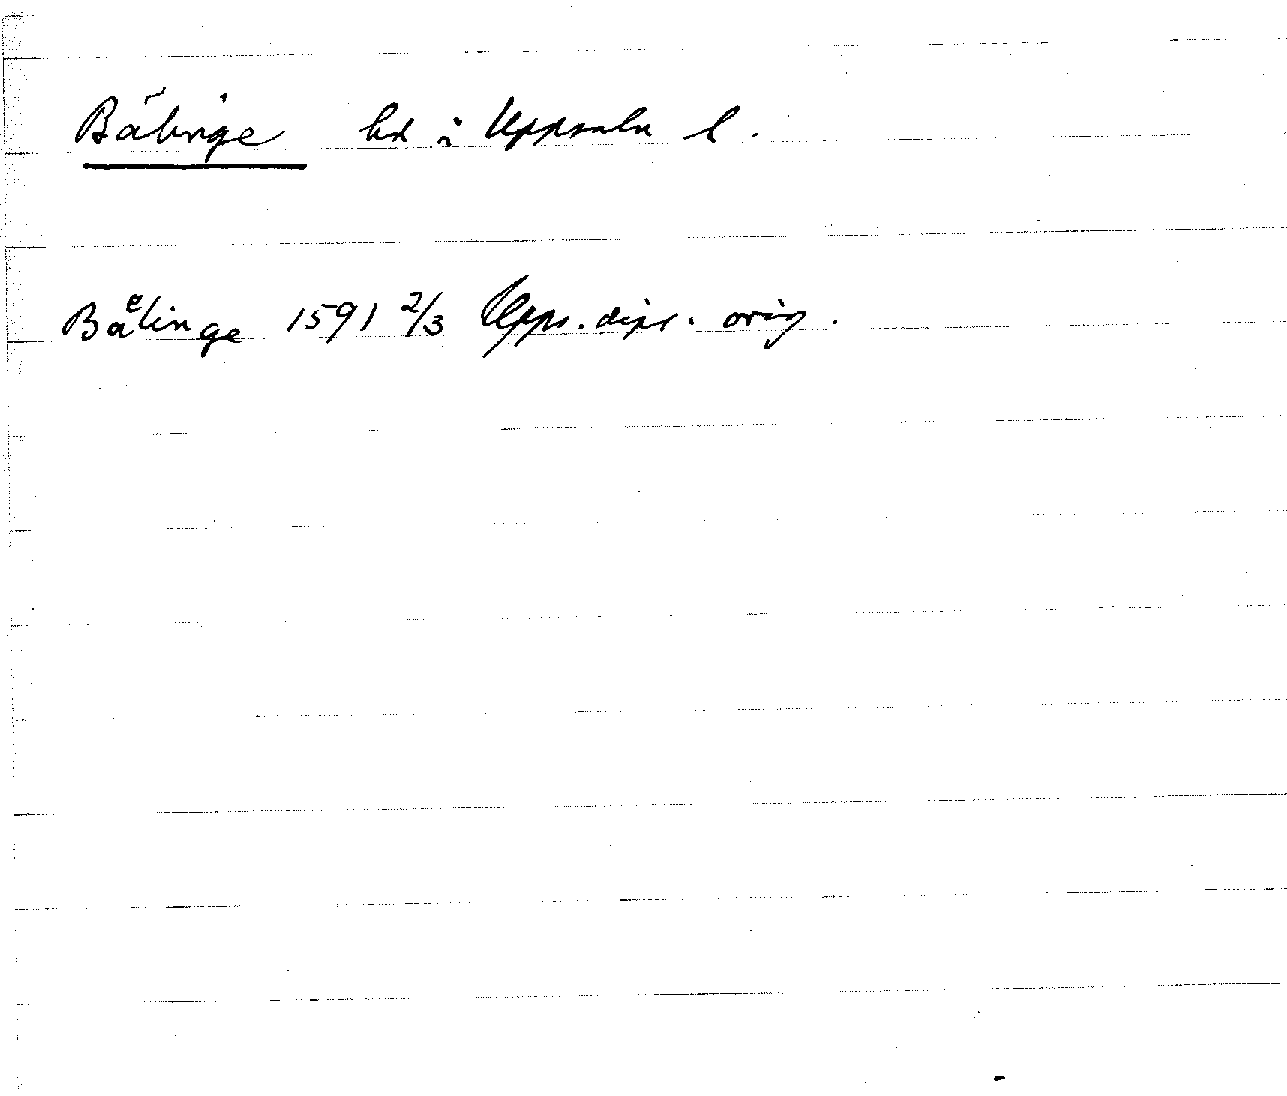 Bälinge hd i Uppsala l.
Baͤlinge 1591 2/3 Upps. dipl. orig.